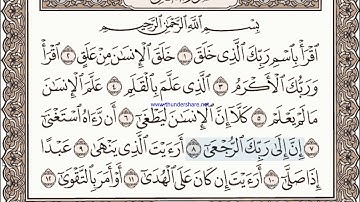 بِسْمِ ٱللَّهِ ٱلرَّحْمَٰنِ ٱلرَّحِيمِ
ٱقْرَأْ بِٱسْمِ رَبِّكَ ٱلَّذِى خَلَقَ ١ خَلَقَ ٱلْإِنسَٰنَ مِنْ عَلَقٍ ٢ ٱقْرَأْ
وَرَبُّكَ ٱلْأَكْرَمُ ٣ ٱلَّذِى عَلَّمَ بِٱلْقَلَمِ ٤ عَلَّمَ ٱلْإِنسَٰنَ
مَا لَمْ يَعْلَمْ ٥ كَلَّآ إِنَّ ٱلْإِنسَٰنَ لَيَطْغَىٰٓ ٦ أَن رَّءَاهُ ٱسْتَغْنَىٰٓ
www.thundershare.net
٧ إِنَّ إِلَىٰ رَبِّكَ ٱلرُّجْعَىٰٓ ٨ أَرَءَيْتَ ٱلَّذِى يَنْهَىٰ ٩ عَبْدًا
إِذَا صَلَّىٰٓ ١٠ أَرَءَيْتَ إِن كَانَ عَلَى ٱلْهُدَىٰٓ ١١ أَوْ أَمَرَ بِٱلتَّقْوَىٰٓ ١٢